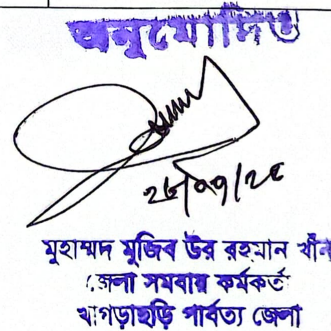 অনুমোদিত
মুহাম্মদ মুজিব উর রহমান খাঁন
জেলা সমবায় কর্মকর্তা
খাগড়াছড়ি পার্বত্য জেলা